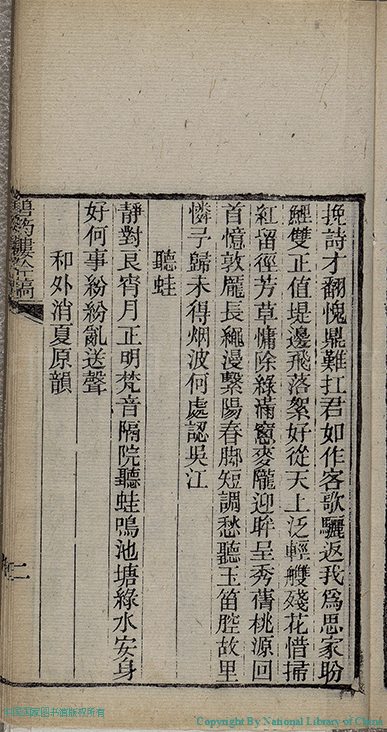 挽詩才翻愧鼎難扛君如作客歌驪返我爲思家盼
鯉雙正值堤邊飛落絮好從天上泛輕艭殘花惜掃
紅留徑芳草慵除綠滿窻麥隴迎眸呈秀蒨桃源回
首憶敦厖長繩漫繫陽春脚短調愁聽玉笛腔故里
憐予歸未得烟波何處認吳江
聽蛙
靜對良宵月正明梵音隔院聽蛙鳴池塘綠水安身
好何事紛紛亂送聲
和外消夏原韻
碧 樓 稿
二
国家图书馆版权所有
Copyright By National Library of China